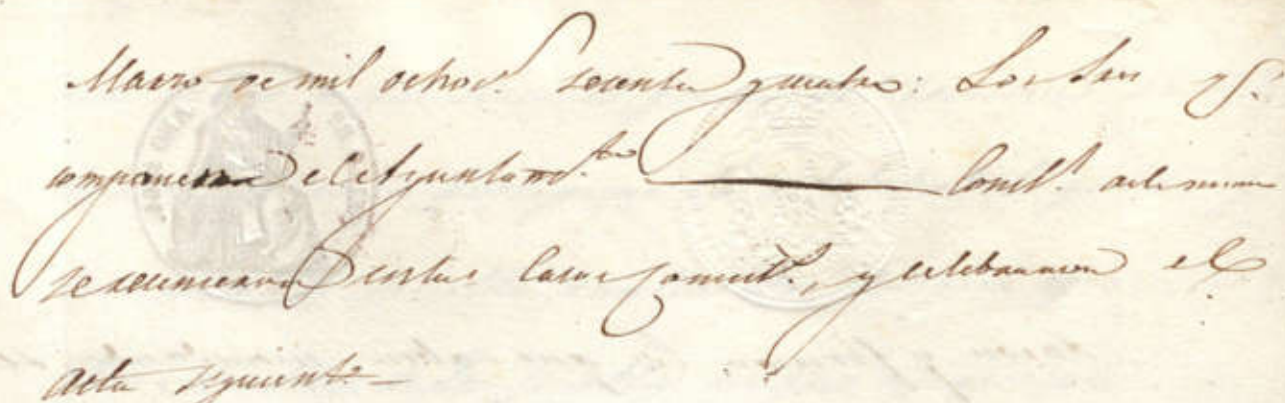 Marzo de mil ochoc.s sesenta y cuatro: Los Sres q.e
componen el Ayuntam.to Const.l de la misma
se reunieron en estas Casas Consist.s, y celebraron el
acta siguiente